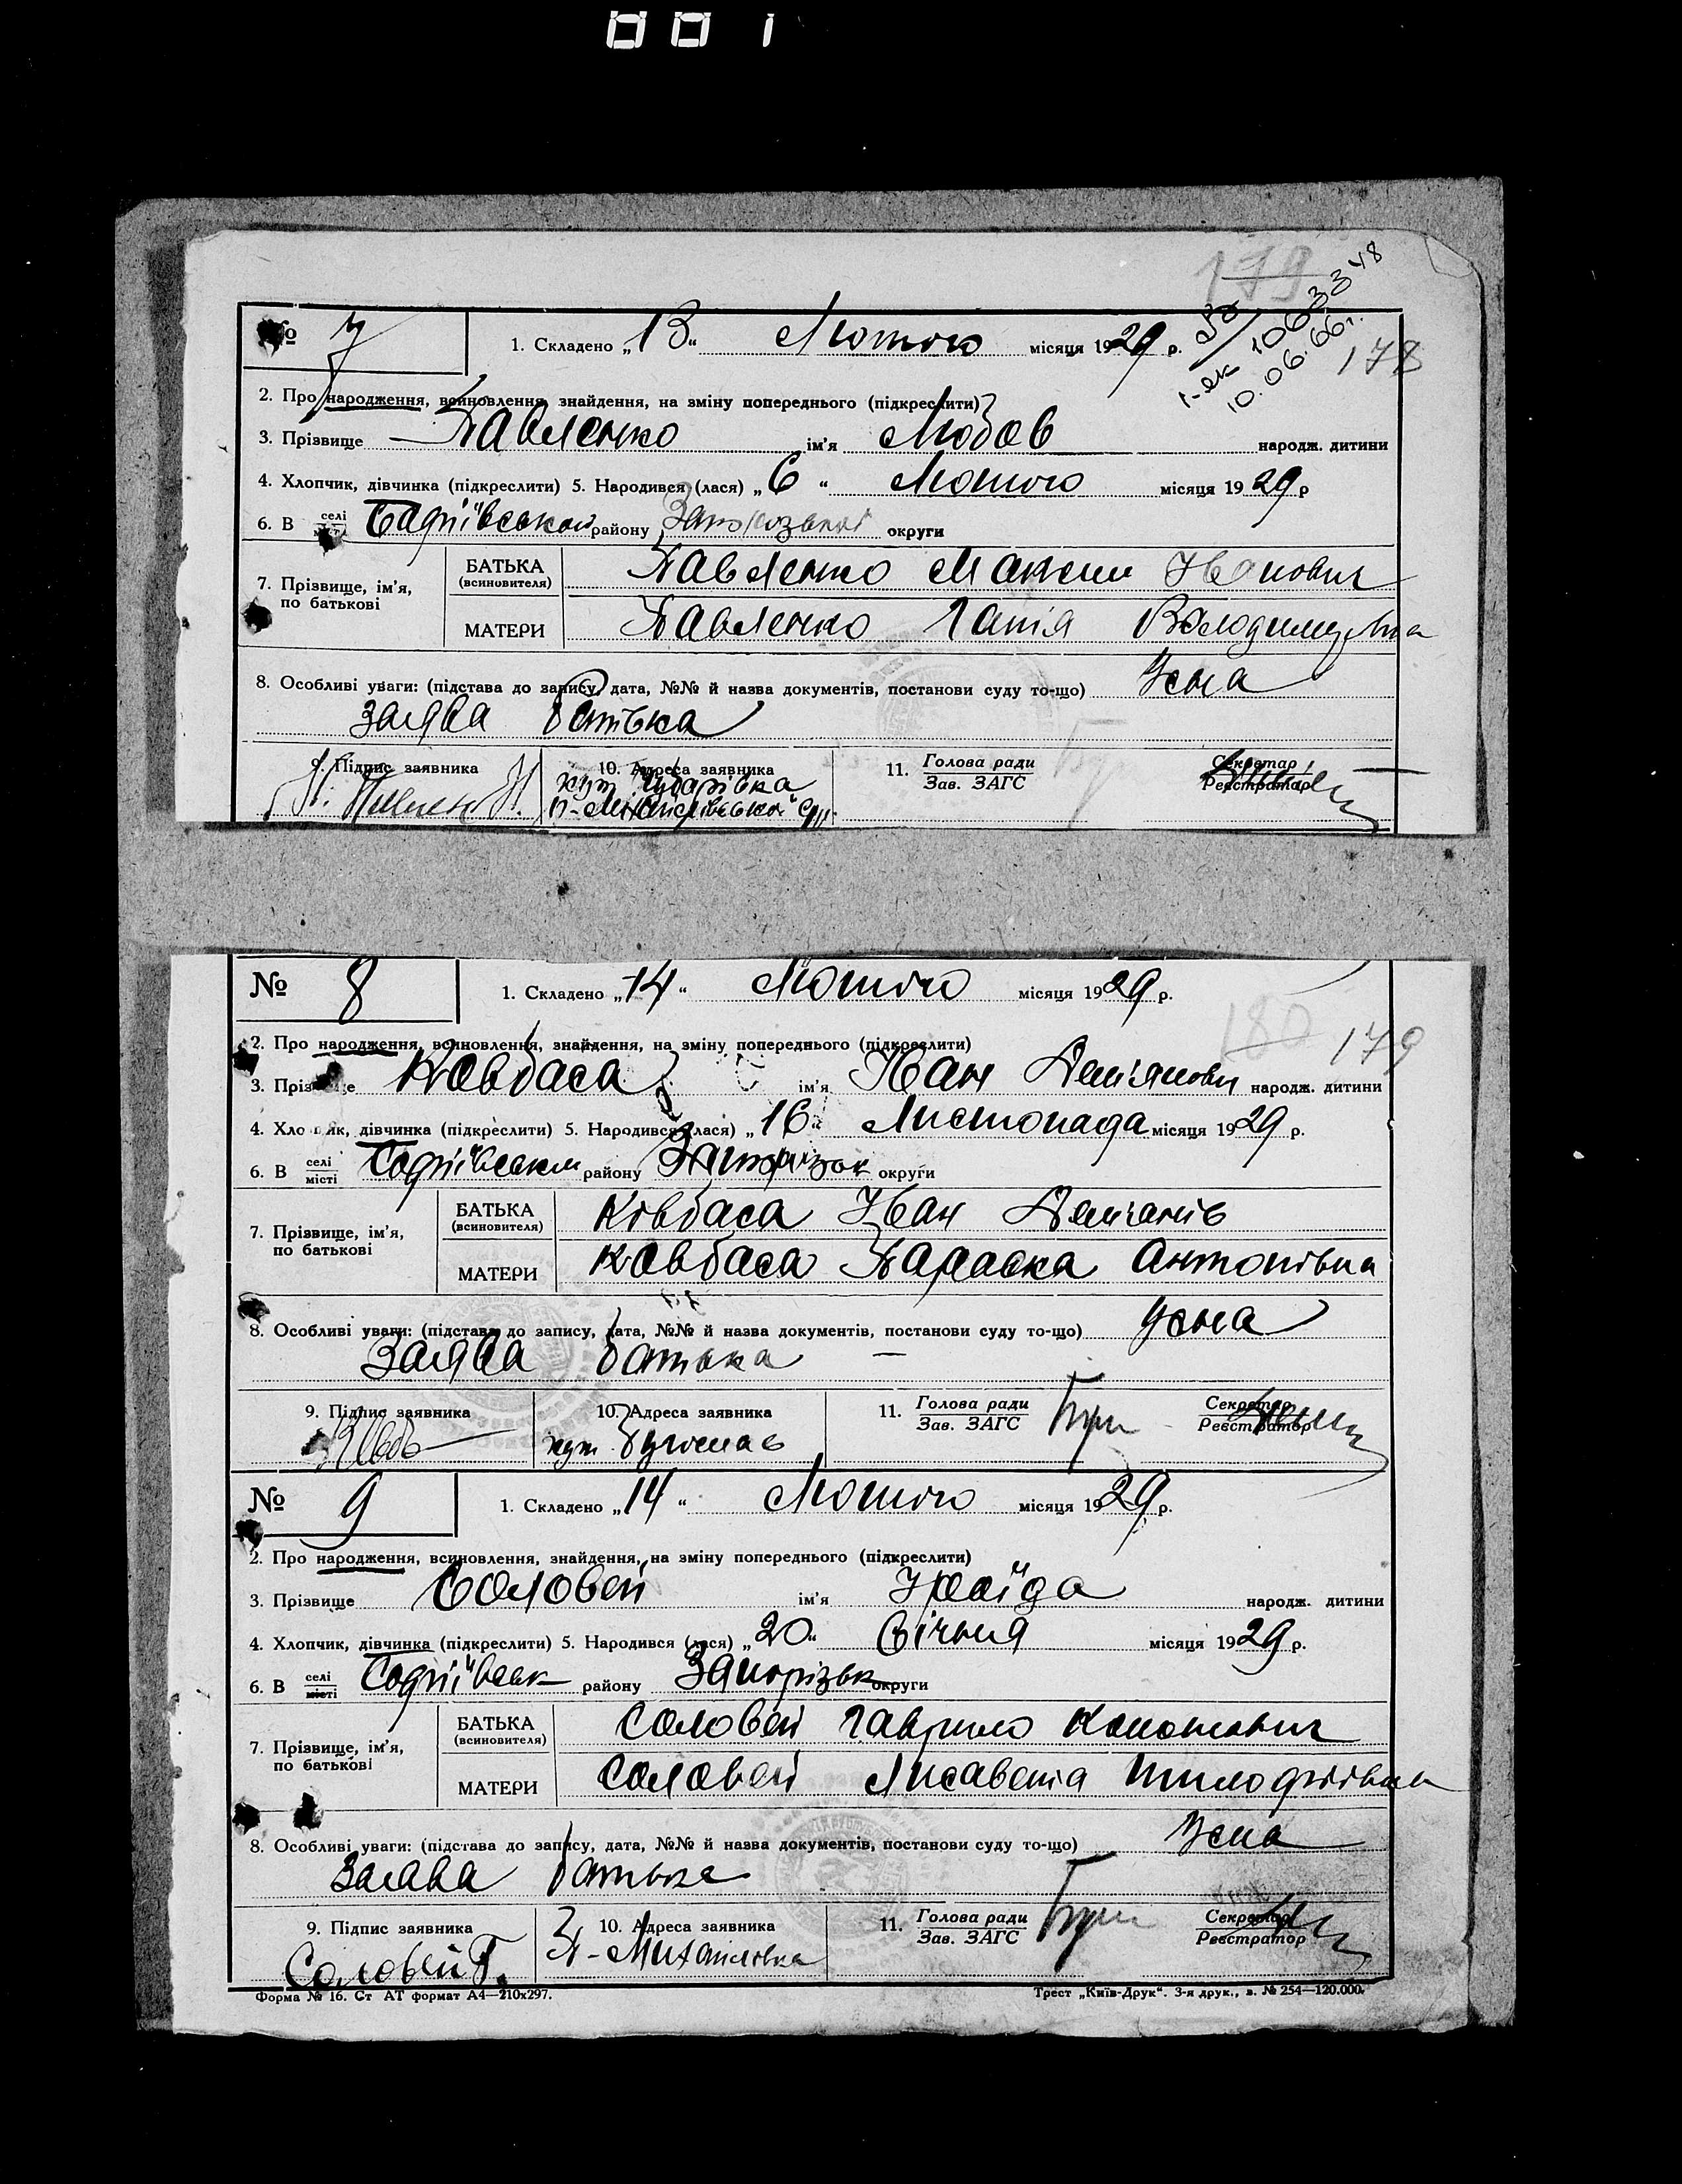 001
179
178
10.06.66 г.
№ 7 1. Складено „13“ Лютого місяця 1929 р.
2. Про народження, всиновлення, знайдення, на зміну попереднього (підкреслити)
3. Прізвище Павленко ім'я Любов народж. дитини
4. Хлопчик, дівчинка (підкреслити) 5. Народився (лася) „6“ Лютого місяця 1929 р
6. В селі Софіївськом району Запорізької округи
7. Прізвище, ім'я, по батькові
БАТЬКА (всиновителя) Павленко Максим Іванович
МАТЕРИ Павленко Ганія Володимирівна
8. Особливі уваги: (підстава до запису, дата, №№ й назва документів, постанови суду то-що) Усна
заява батька
9. Підпис заявника 10. Адреса заявника 11. Голова ради Секретар
Зав. ЗАГС Реєстратор
хут
№ 8 1. Складено „14“ Лютого місяця 1929 р.
180 179
2. Про народження, всиновлення, знайдення, на зміну попереднього (підкреслити)
3. Прізвище Ковбаса ім'я Іван Дем'янович народж. дитини
4. Хлопчик, дівчинка (підкреслити) 5. Народився (лася) „16“ Листопада місяця 1929 р.
6. В селі місті Софіївськом району Запорізьк округи
7. Прізвище, ім'я, по батькові
БАТЬКА (всиновителя) Ковбаса Іван Дем'янів
МАТЕРИ Ковбаса Параска Антонівна
8. Особливі уваги: (підстава до запису, дата, №№ й назва документів, постанови суду то-що) Усна
Заява батька —
9. Підпис заявника 10. Адреса заявника 11. Голова ради Секретар
Зав. ЗАГС Реєстратор
хут
№ 9 1. Складено „14“ Лютого місяця 1929 р.
2. Про народження, всиновлення, знайдення, на зміну попереднього (підкреслити)
3. Прізвище Соловей ім'я Іраїда народж. дитини
4. Хлопчик, дівчинка (підкреслити) 5. Народився (лася) „20“ Січня місяця 1929 р.
6. В селі місті Софіївськ району Запорізьк округи
7. Прізвище, ім'я, по батькові
БАТЬКА (всиновителя) Соловей Гаврило
МАТЕРИ Соловей Лисавета
8. Особливі уваги: (підстава до запису, дата, №№ й назва документів, постанови суду то-що) Усна
Заява батька
9. Підпис заявника 10. Адреса заявника 11. Голова ради Секретар
Зав. ЗАГС Реєстратор
Соловей Г. Михайлівка
Форма № 16. Ст АТ формат А4—210х297. Трест „Київ-Друк“. 3-я друк., з. № 254—120.000.